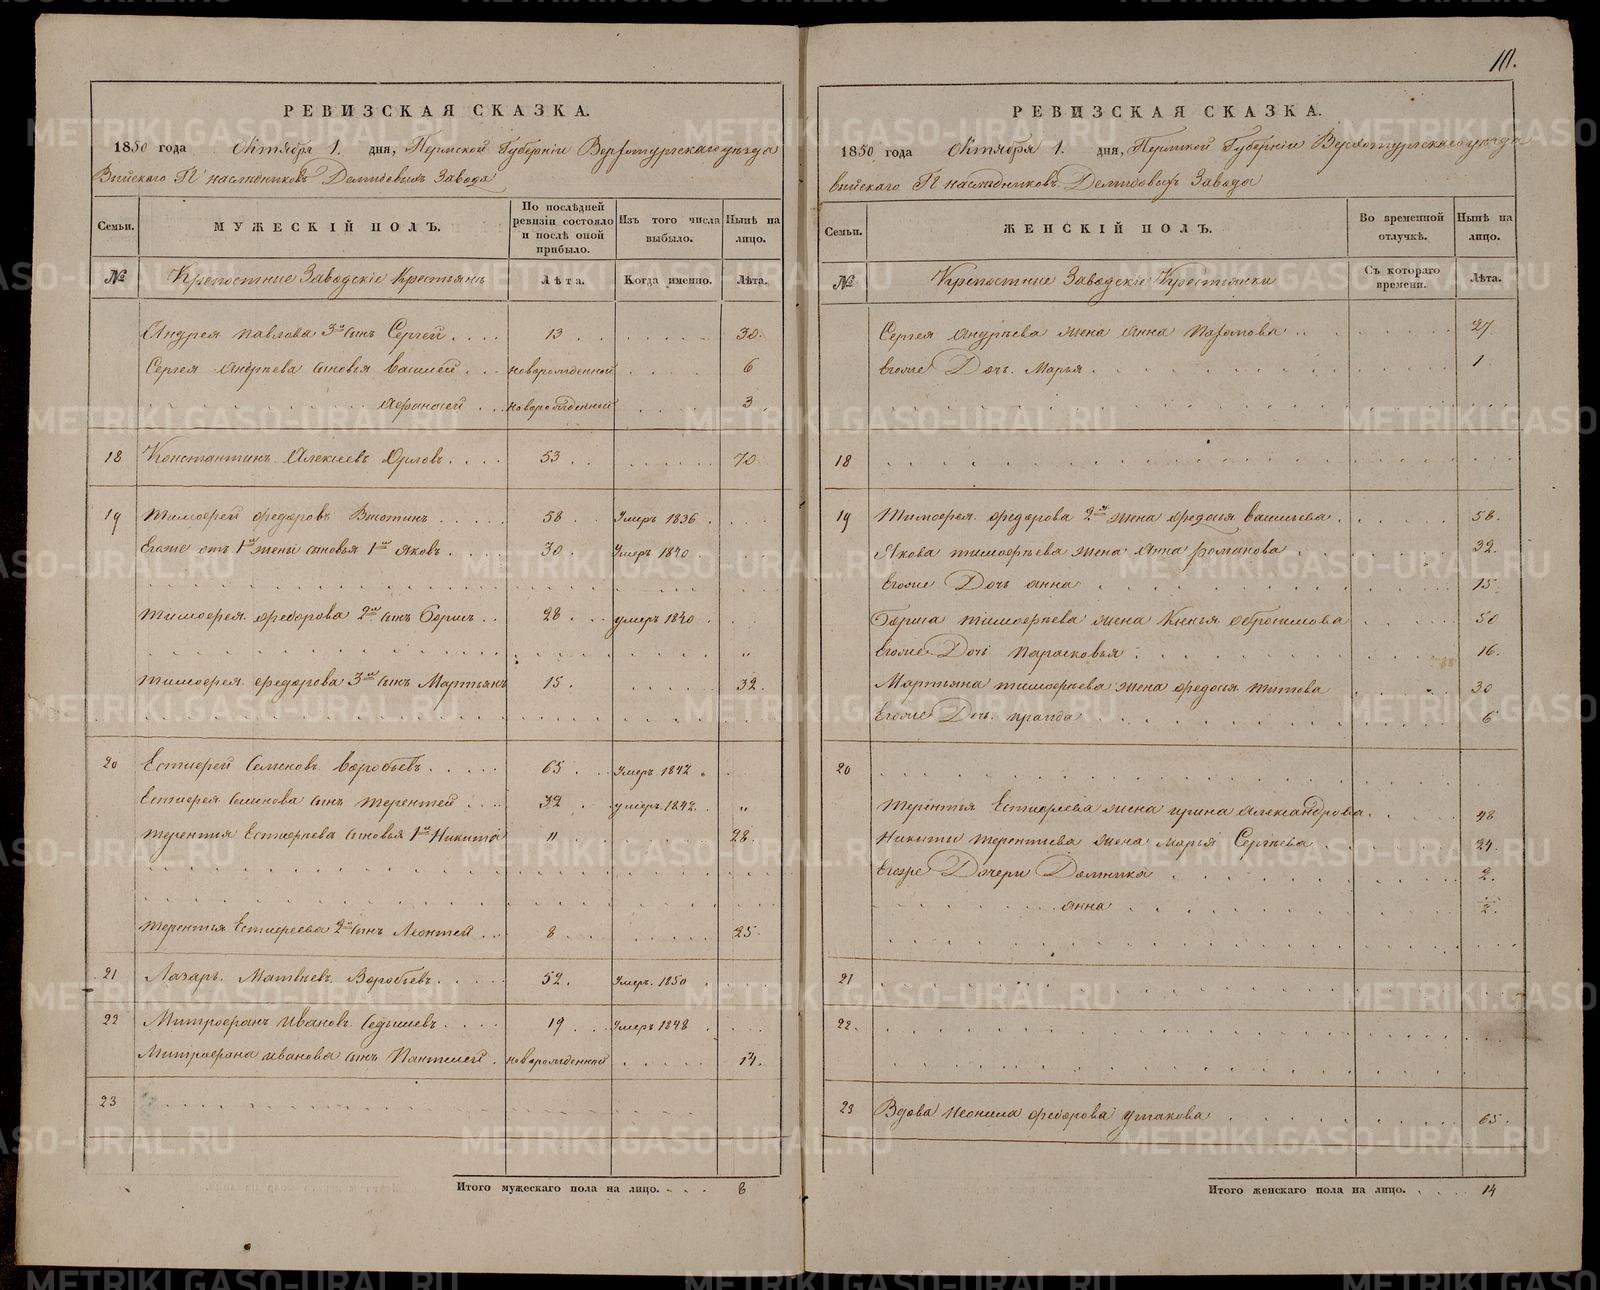 10.
РЕВИЗСКАЯ СКАЗКА.
1850 года Октября 1. дня, Пермской Губерніи Верхотурскаго уезда
Выйскаго Гг наследниковъ Демидовыхъ Завода
Семьи. МУЖЕСКІЙ ПОЛЪ. По послѣдней ревизіи состояло и послѣ оной прибыло. Изъ того числа выбыло. Нынѣ на лицо.
№ Крепостные Заводскіе Крестьянъ Лѣта. Когда именно. Лѣта.
Андрея Павлова 3й сынъ Сергей 13 30
Сергея Андреева сыновья Василей новорожденной 6
Афанасей новорожденной 3
18 Константинъ Алексеевъ Орловъ 53 70
19 Тимофей Федоровъ 58 Умеръ 1836
Егоже отъ 1й жены сыновья 1й Яковъ 30 Умеръ 1840
Тимофея Федорова 2й сынъ Борисъ 28 умеръ 1840
Тимофея Федорова 3й сынъ Мартьянъ 15 32
20 Естифей Семеновъ Воробьевъ 65 Умеръ 1842
Естифея Семенова сынъ Терентей 32 умеръ 1842
Терентья Естифеева сыновья 1й Никита 11 28
Терентья Естифеева 2й сынъ Леонтей 8 25
21 Лазарь Матвеевъ Воробьевъ 52 Умеръ 1850
22 Митрофанъ Ивановъ Седышевъ 19 Умеръ 1848
Митрофана Иванова сынъ Пантелей новорожденной 14
23
Итого мужескаго пола на лицо. 8
РЕВИЗСКАЯ СКАЗКА.
1850 года Октября 1. дня, Пермской Губерніи Верхотурскаго уезда
Выйскаго Гг наследниковъ Демидовыхъ Завода
Семьи. ЖЕНСКІЙ ПОЛЪ. Во временной отлучкѣ. Нынѣ на лицо.
№ Крепостные Заводскіе Крестьянки Съ котораго времени. Лѣта.
Сергея Андреева жена Анна Пахомова 27
Егоже Дочь Марья 1
18
19 Тимофея Федорова 2я жена Федосья Васильева 58
Якова Тимофеева жена Анна Романова 32
Егоже Дочь Анна 15
Бориса Тимофеева жена Обросимова 50
Егоже Дочь Парасковья 16
Мартьяна Тимофеева жена Федосья Титова 30
Егоже Дочь 6
20
Терентья Естифеева жена Ирина Александрова 48
Никиты Терентьева жена Марья Сергеева 24
Егоже Дочери Домника 2
Анна 2
21
22
23 Вдова Неонила Федорова Ушакова 65
Итого женскаго пола на лицо. 14
METRIKI.GASO-URAL.RU